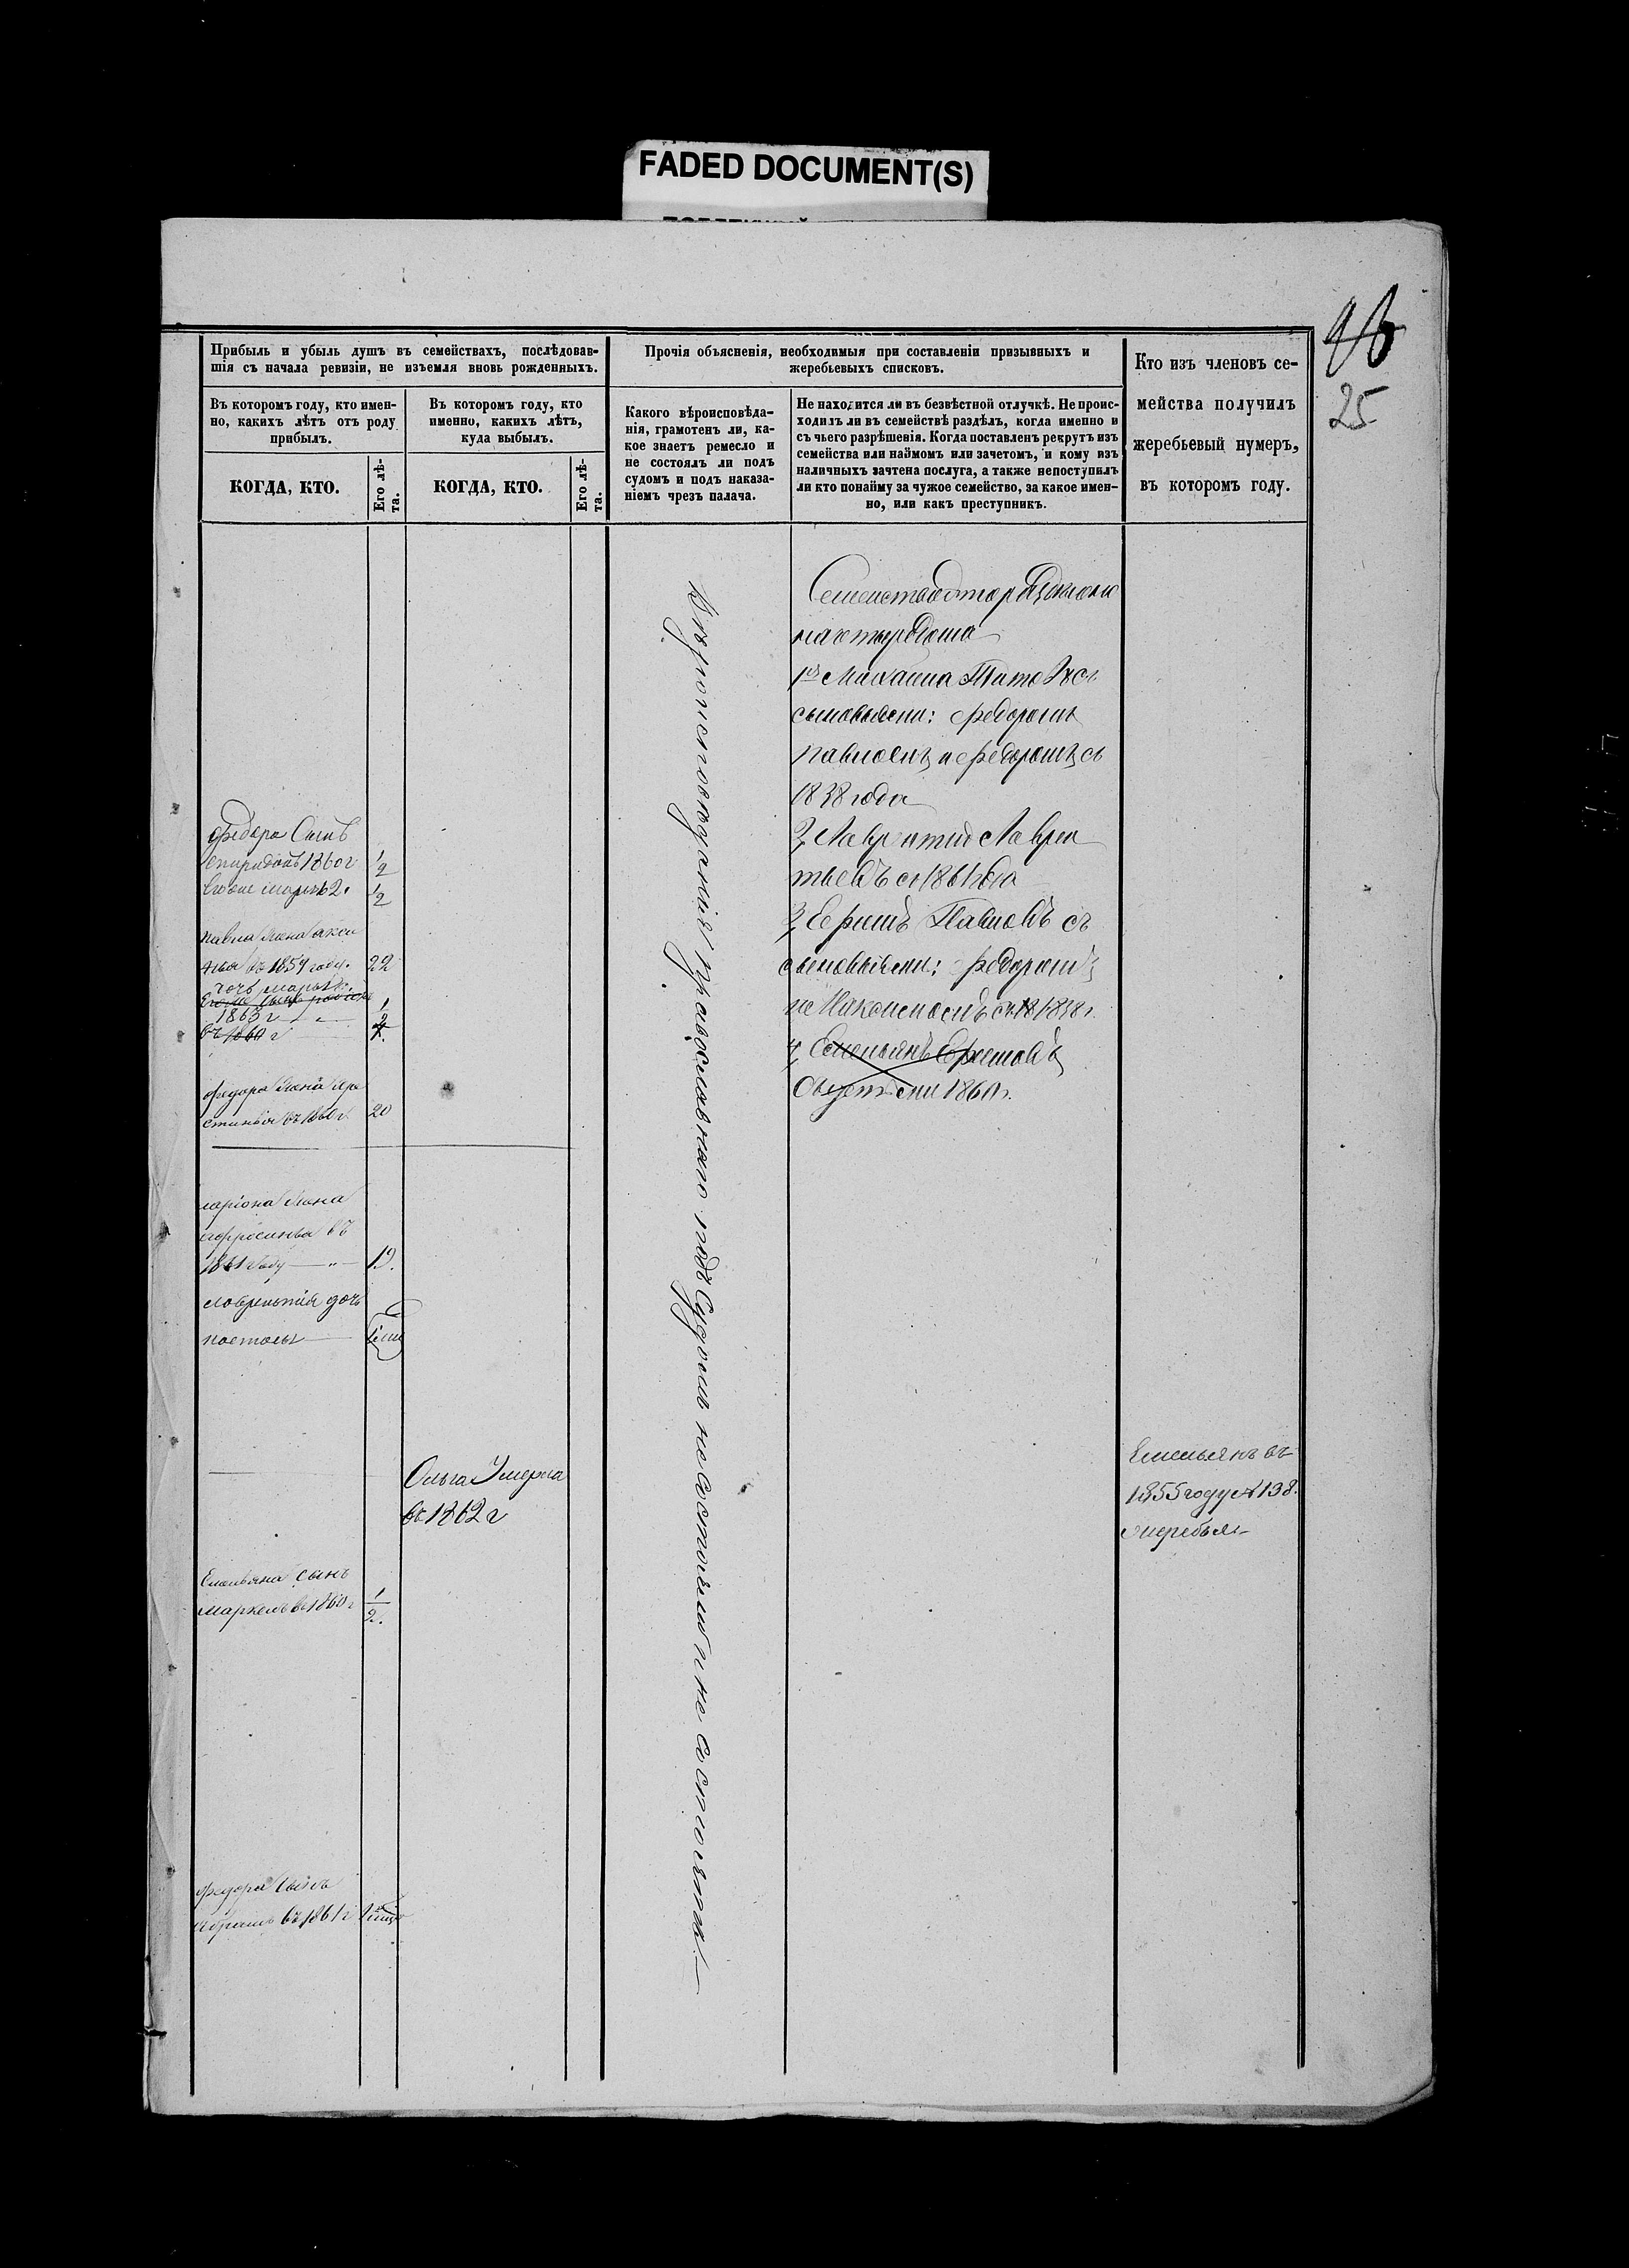 FADED DOCUMENT(S)
25
Прибыль и убыль душъ въ семействахъ, послѣдовав-
шія съ начала ревизіи, не изъемля вновь рожденныхъ.
Въ которомъ году, кто имен-
но, какихъ лѣтъ отъ роду
прибылъ.
КОГДА, КТО.
Его лѣ-
та.
Въ которомъ году, кто
именно, какихъ лѣтъ,
куда выбылъ.
КОГДА, КТО.
Его лѣ-
та.
Прочія объясненія, необходимыя при составленіи призывныхъ и
жеребьевыхъ списковъ.
Какого вѣроисповѣда-
нія, грамотенъ ли, ка-
кое знаетъ ремесло и
не состоялъ ли подъ
судомъ и подъ наказа-
ніемъ чрезъ палача.
Не находится ли въ безвѣстной отлучкѣ. Не проис-
ходилъ ли въ семействѣ раздѣлъ, когда именно и
съ чьего разрѣшенія. Когда поставленъ рекрутъ изъ
семейства или наймомъ или зачетомъ, и кому изъ
наличныхъ зачтена послуга, а также непоступилъ
ли кто понайму за чужое семейство, за какое имен-
но, или какъ преступникъ.
Кто изъ членовъ се-
мейства получилъ
жеребьевый нумеръ,
въ которомъ году.
Федора Сынъ
спиридонъ 1860 г
1/2
1/2
павла жена акси
нья въ 1859 году.
22
дочь марья
1863 г
1/2
въ 1860 г
федора жена
въ 1860 г.
20
ларіона жена
афросинья въ
1861 году — " — 19.
лаврентія дочь
Ольга Умерла
въ 1862 г
Емельяна сынъ
маркелъ въ 1860 г
1/2.
федора сынъ
абрамъ въ 1861 г
Вѣроисповеданія православнаго подъ Судомъ несостояли и не состоятъ
Семейство
на четыре
1е Михаила съ
сыновьями: Федоромъ
павломъ и Федоромъ съ
1838 года
2, Лаврентий Лаврен
тьевъ съ 1861 года
3, Ефимъ Павловъ съ
сыновьями: Федоромъ
4, Емельянъ Ефимовъ
1860 г.
Емельянъ въ
1855 году № 138.
жеребья